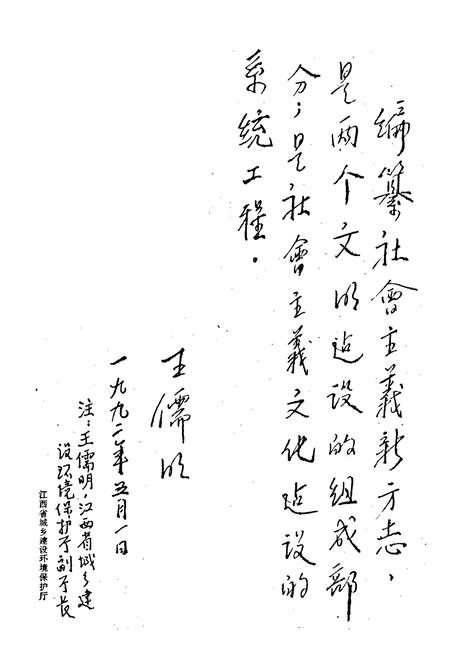 编纂社會主義新方志，
是两个文明建设的组成部
分，是社會主義文化建设的
系统工程。
王儒明
一九九二年五月一日
注：王儒明，江西省城乡建
设环境保护厅副厅长
江西省城乡建设环境保护厅